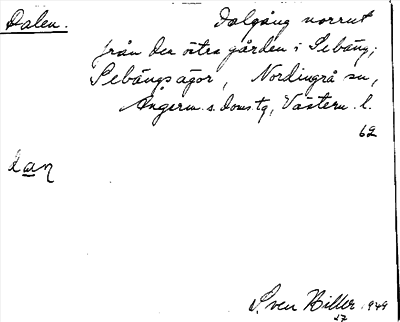 Dalen. Dalgång norrut
från den östra gården i Sebäng;
Sebängs ägor, Nordingrå sn,
Ångerm. s. doms tg, Västern. l.
62
dan
Sven Hiller 1949
27